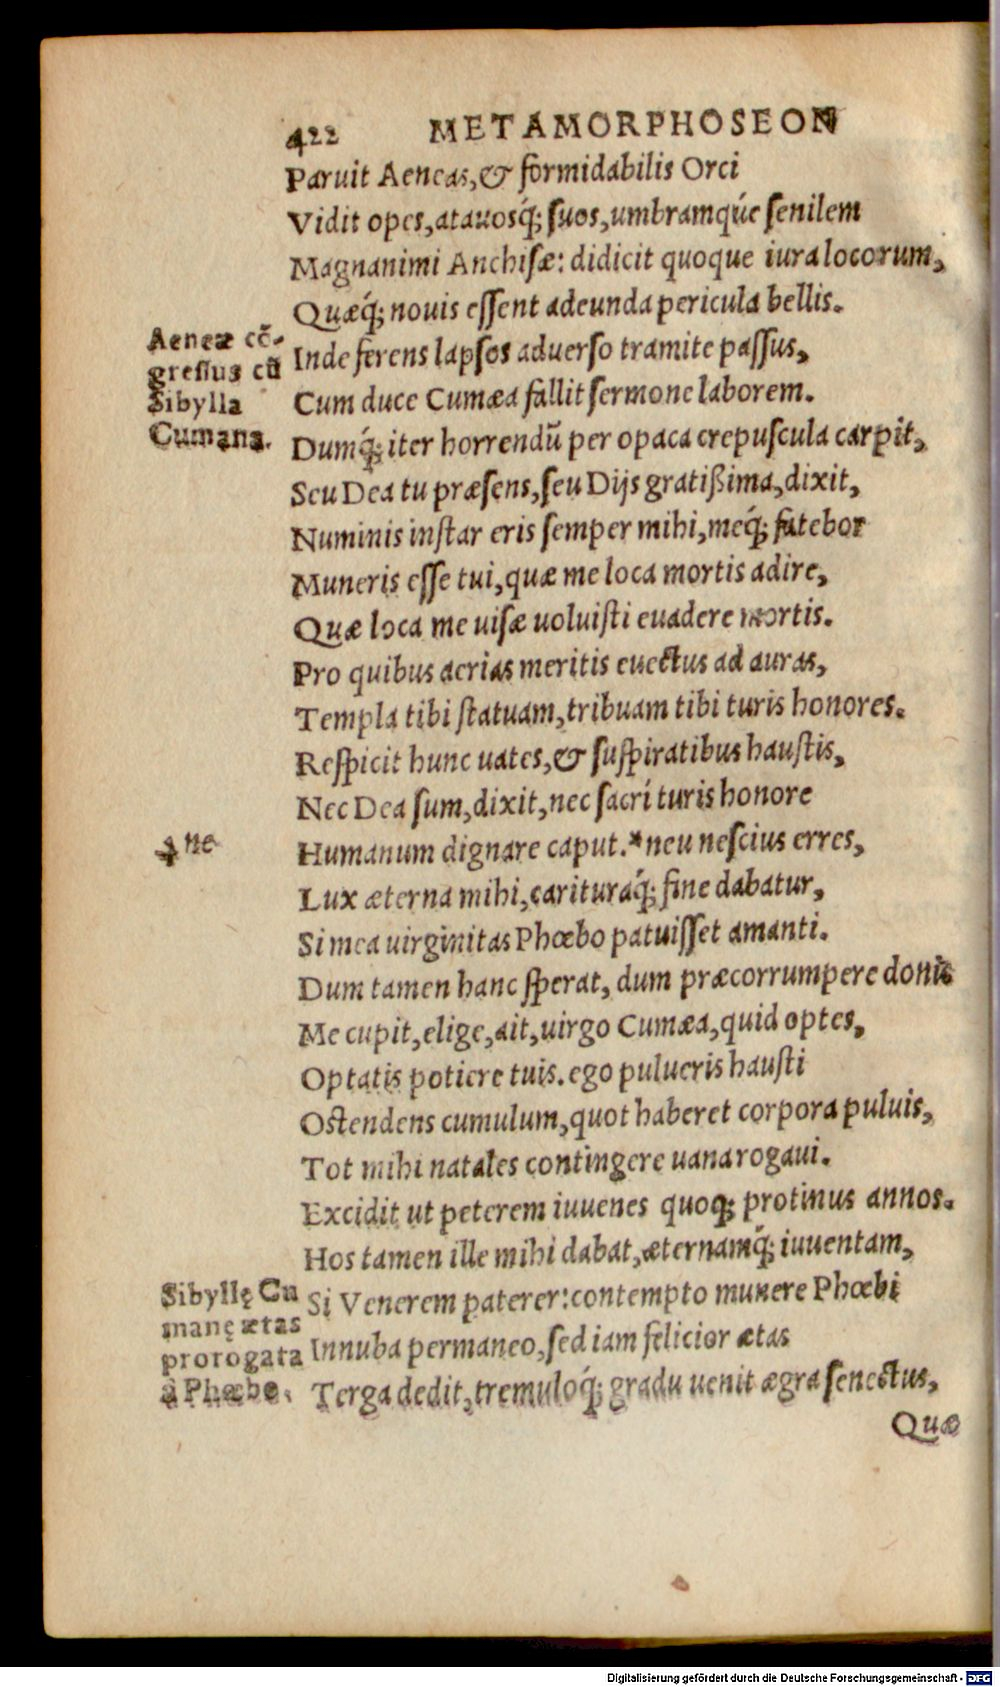 422 METAMORPHOSEON
Paruit Aeneas,& formidabilis Orci
Vidit opes,atauosq́; suos,umbramqúe senilem
Magnanimi Anchisæ: didicit quoque iura locorum,
Quæq́; nouis essent adeunda pericula bellis.
Aeneæ cō-
gressus cū
Sibylla
Cumana.
Inde ferens lapsos aduerso tramite passus,
Cum duce Cumæa fallit sermone laborem.
Dumq́; iter horrendū per opaca crepuscula carpit,
Seu Dea tu præsens,seu Dijs gratißima,dixit,
Numinis instar eris semper mihi,meq́; fatebor
Muneris esse tui,quæ me loca mortis adire,
Quæ loca me uisæ uoluisti euadere mortis.
Pro quibus aerias meritis euectus ad auras,
Templa tibi statuam,tribuam tibi turis honores.
Respicit hunc uates,& suspiratibus haustis,
Nec Dea sum,dixit,nec sacri turis honore
ne
Humanum dignare caput.*neu nescius erres,
Lux æterna mihi,carituraq́; fine dabatur,
Si mea uirginitas Phœbo patuisset amanti.
Dum tamen hanc sperat, dum præcorrumpere donis
Me cupit,elige,ait,uirgo Cumæa,quid optes,
Optatis potiere tuis.ego pulueris hausti
Ostendens cumulum,quot haberet corpora puluis,
Tot mihi natales contingere uana rogaui.
Excidit ut peterem iuuenes quoq; protinus annos.
Hos tamen ille mihi dabat,æternamq́; iuuentam,
Sibyllę Cu
manę ætas
prorogata
à Phœbo.
Si Venerem paterer:contempto munere Phœbi
Innuba permaneo,sed iam felicior ætas
Terga dedit,tremuloq́; gradu uenit ægra senectus,
Quæ
Digitalisierung gefördert durch die Deutsche Forschungsgemeinschaft - DFG